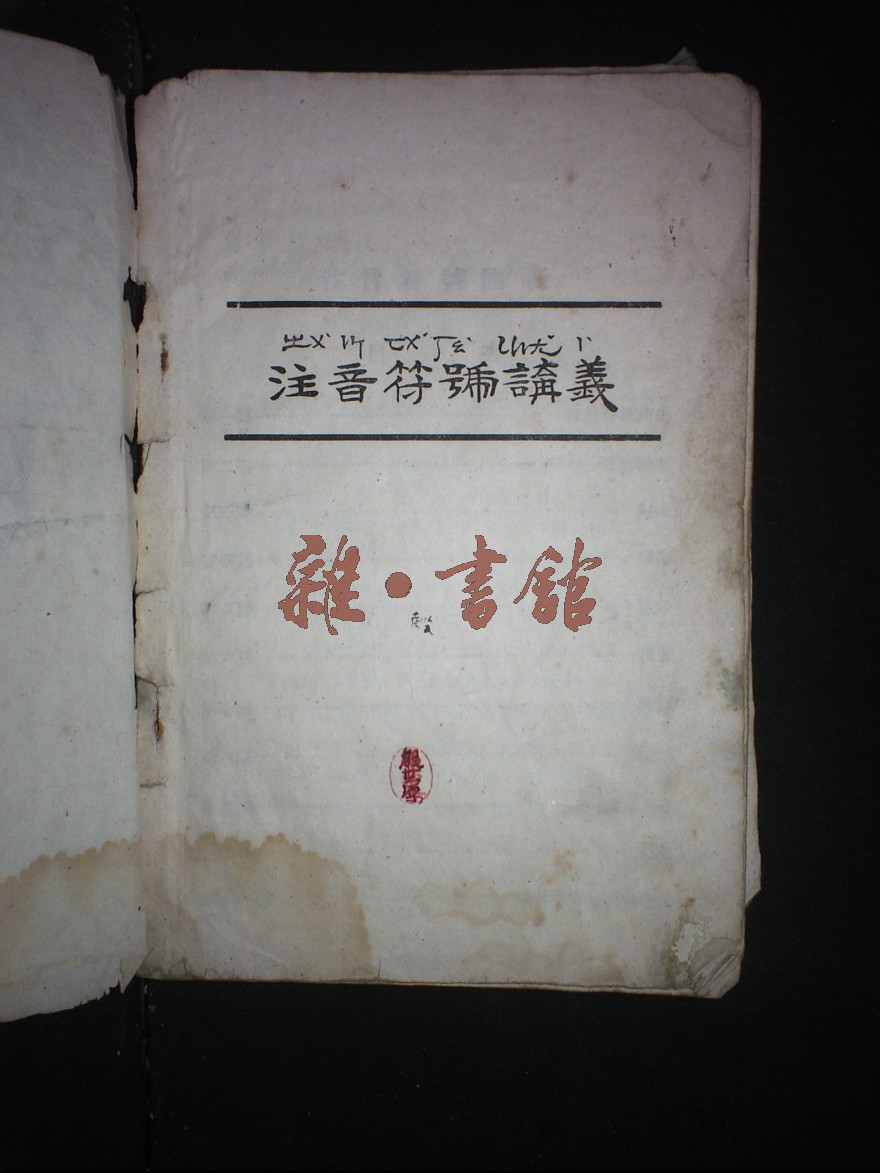 ㄓㄨ ㄧㄣ ㄈㄨ ㄏㄠ ㄐㄧㄤ ㄧ
注音符號講義
雜·書館